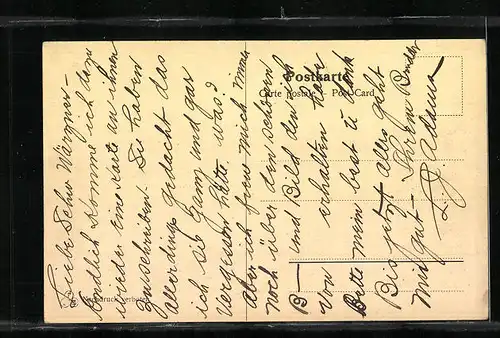 Liebe Schw. Wärgner -
Endlich komme ich dazu
wieder eine Karte an ihnen
zu schreiben. Sie haben
allerdings gedacht das
ich sie ganz und gar
vergessen hätte. was?
aber ich freu mich immer
noch über den schönen
B- und Bild den ich
von erhalten habe
Bitte mein best u dank
Bis jetzt alles geht
mir gut - Ihrem Bruder
J. Adams
Postkarte
Carte postale - Post Card
Nachdruck verboten